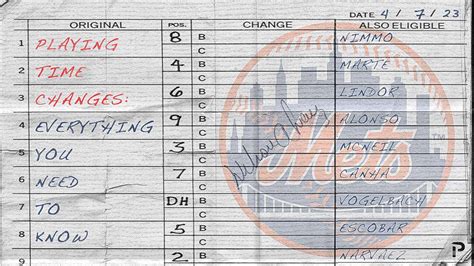 DATE 4/7/23
ORIGINAL POS. CHANGE ALSO ELIGIBLE
1 PLAYING 8 B C NIMMO
2 TIME 4 B C MARTE
3 CHANGES: 6 B C LINDOR
4 EVERYTHING 9 B C ALONSO
5 YOU 3 B C MCNEIL
6 NEED 7 B C CANHA
7 TO DH B C VOGELBACH
8 KNOW 5 B C ESCOBAR
9 2 B NARVAEZ
Mets
TM
P